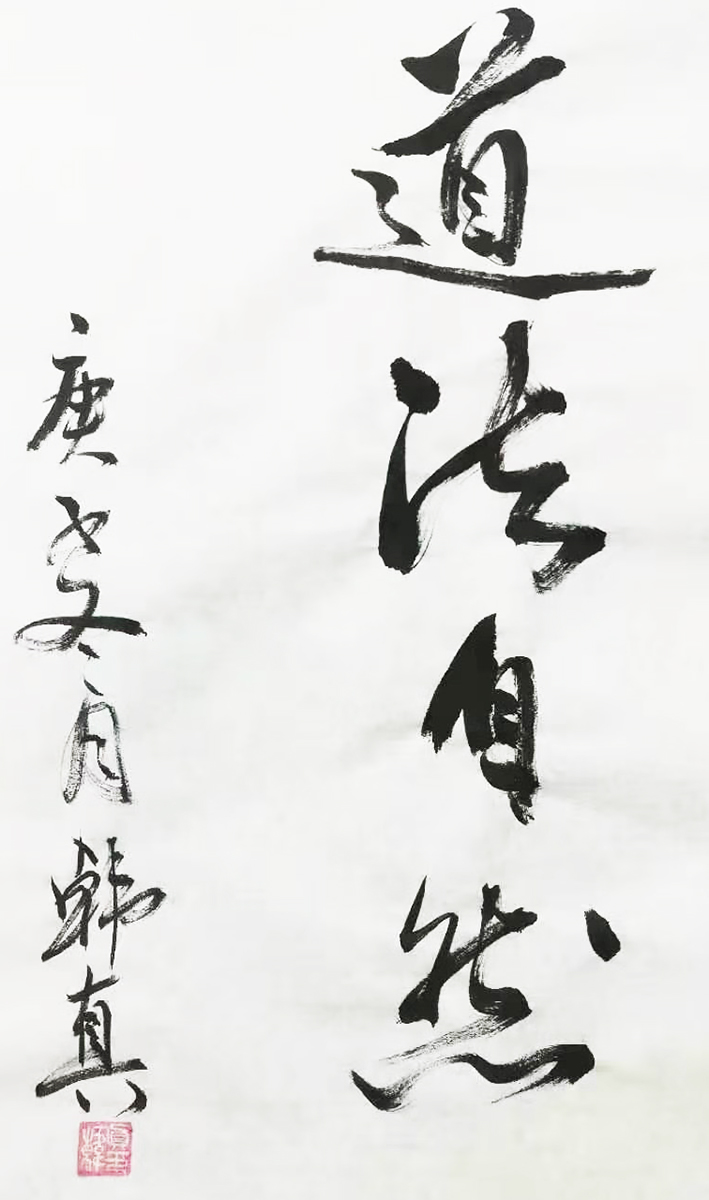 道法自然
庚子冬月韩真